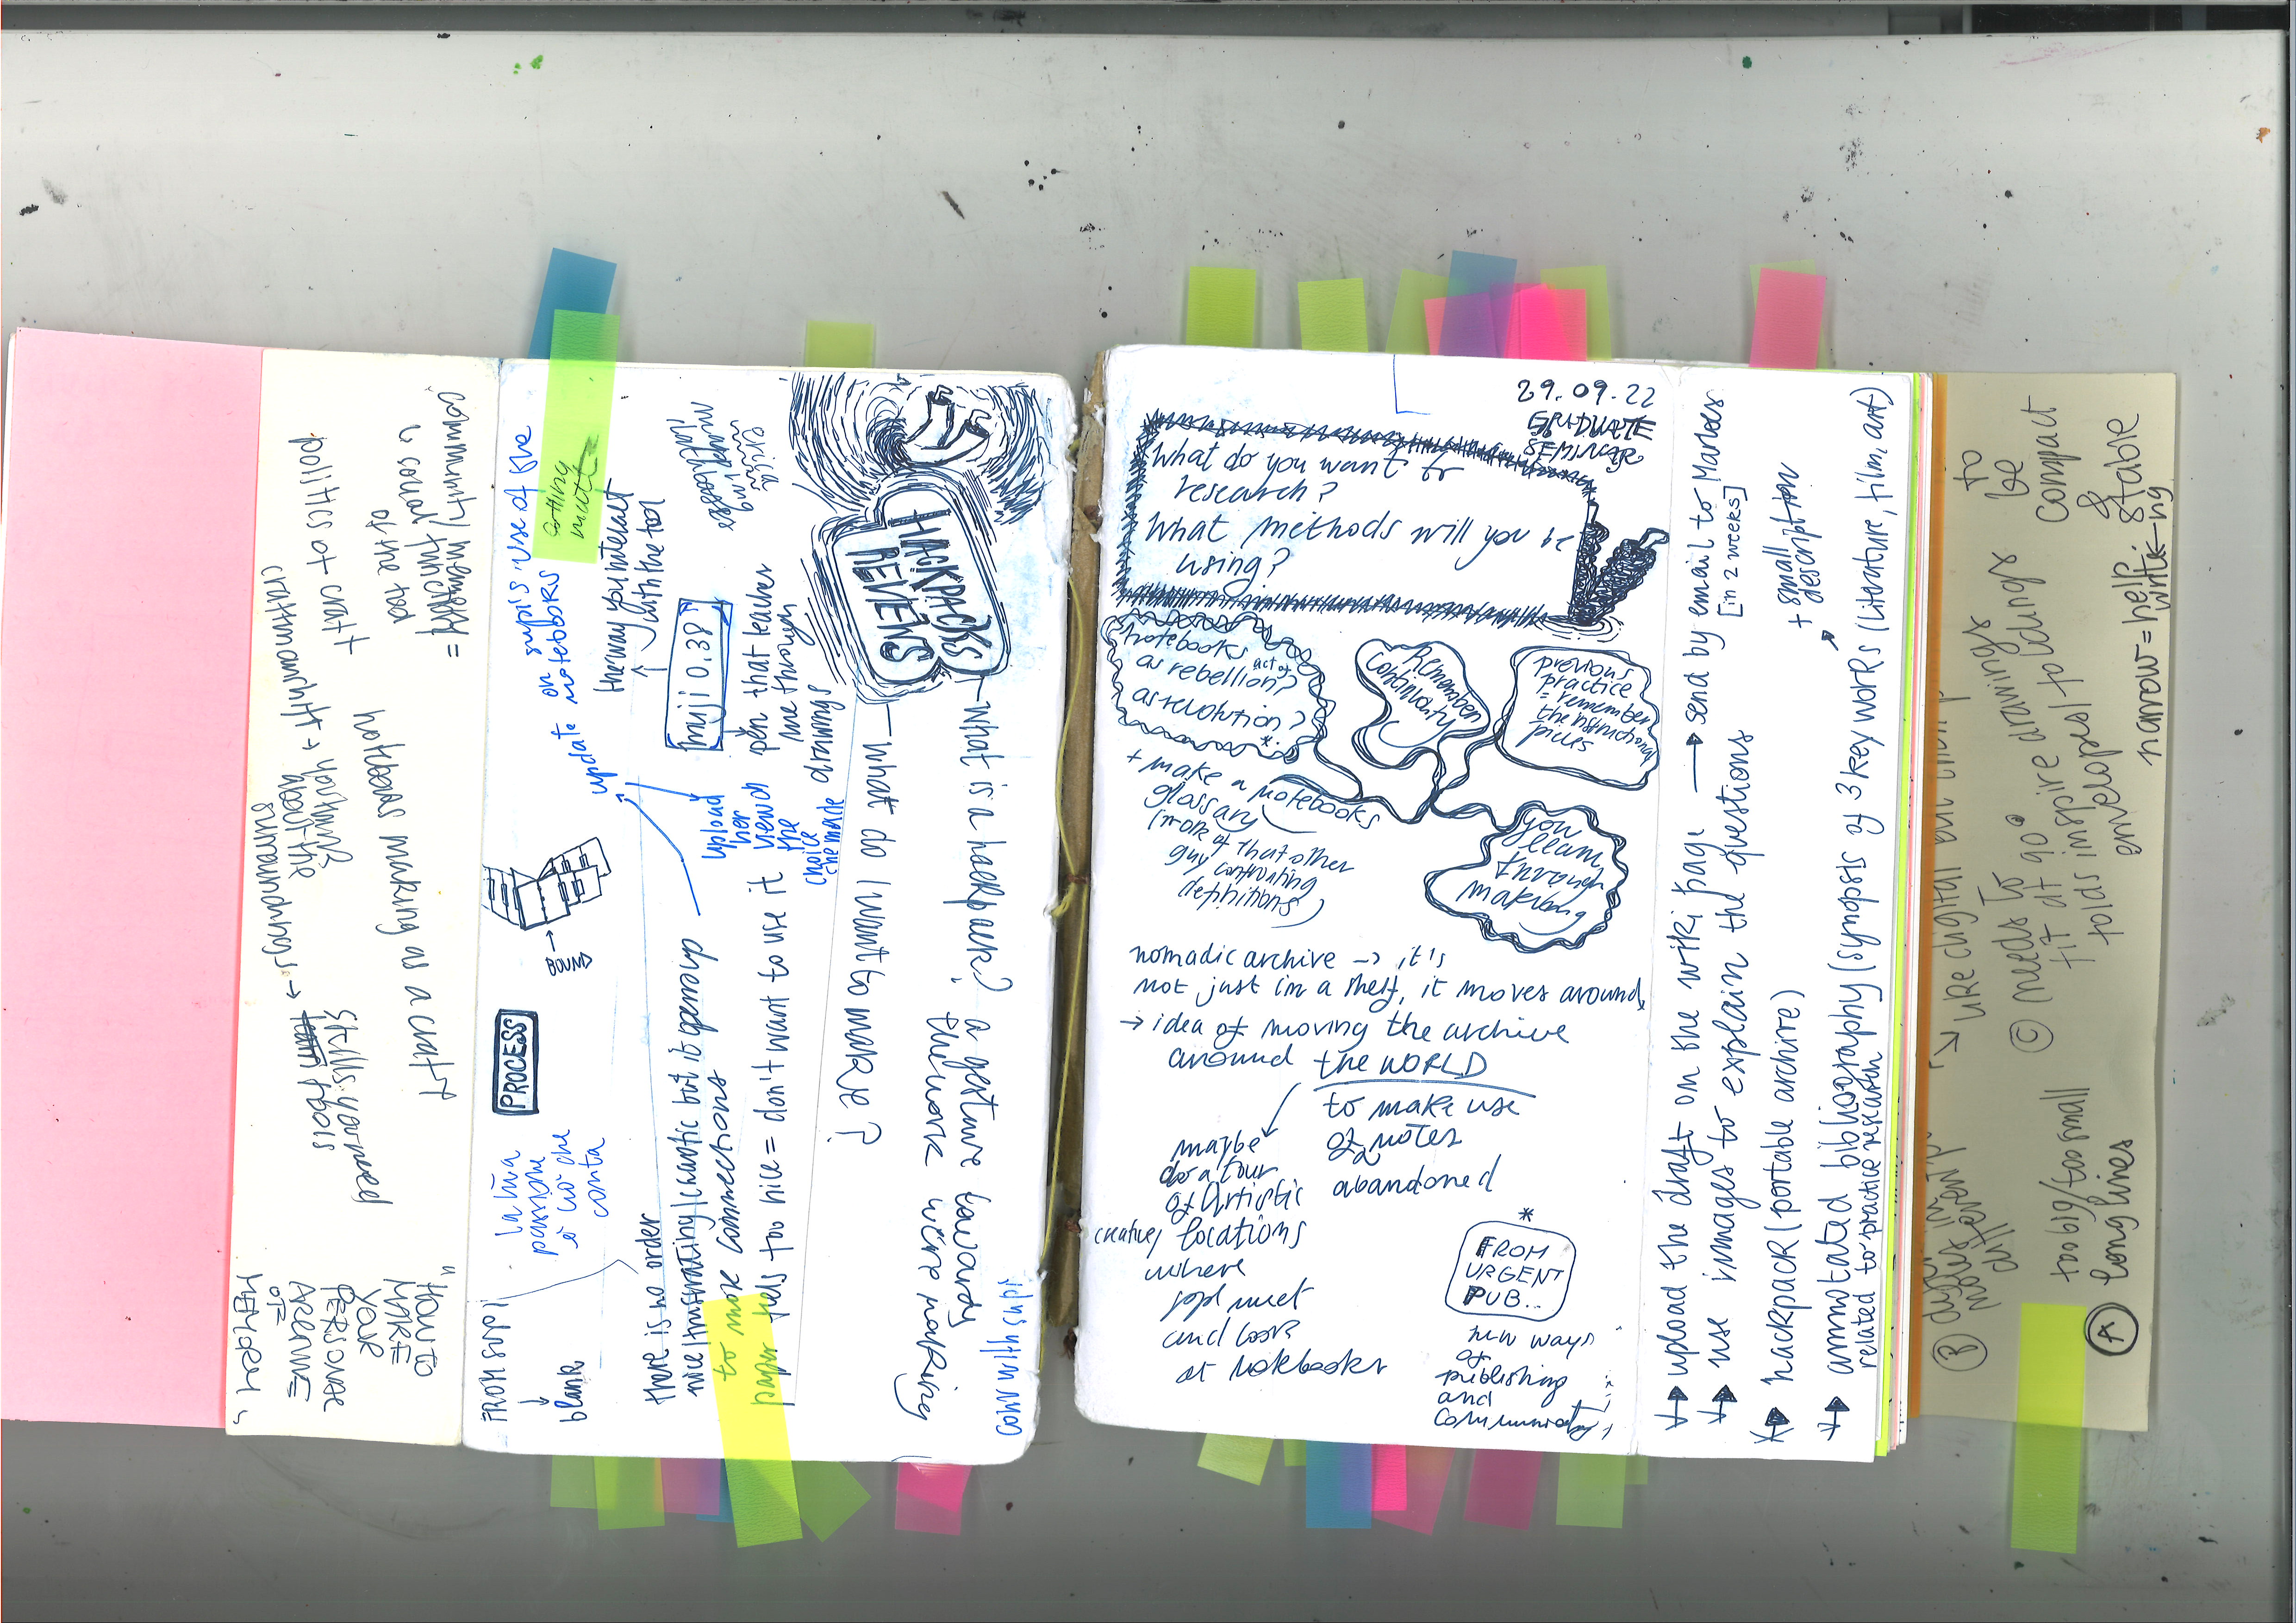 29.09.22
GRADUATE
SEMINAR
What do you want to
research?
What methods will you be
using?
notebooks
as act of rebellion?
as revolution?
*
Remember
Continuity
previous
practice
= remember
the instructional
pieces
+ make a notebooks
glossary
(more of that other
guy confronting
definitions)
you
learn
through
making
nomadic archive → it's
not just in a shelf, it moves around
→ idea of moving the archive
around the WORLD
to make use
of notes
abandoned
maybe
do a tour
of Artistic
creative/ locations
where
ppl meet
and look
at notebooks
*
FROM
URGENT
PUB...
new ways
of
publishing
and
community
→ upload the draft on the wiki page → send by email to Marloes
[in 2 weeks]
→ use images to explain the questions
→ hackpack (portable archive)
+ small
description
→ annotated bibliography (synopsis of 3 key works (literature, film, art)
related to practice research
needs to
fit at 90°
to
be
compact
&
stable
narrow = help
folds inspire drawings
envelopes/foldings
too big/too small
long lines
A
B
C
HACKPACKS
REVIEWS
— what is a hackpack? a gesture towards
the work we're making
— what do I want to make?
conv with supi
muji 0.38
the way you interact
with the tool
pen that teaches
me through
drawings
upload
her
view
the
choice
she made
update on supi's use of the
notebooks
cutting
BOUND
PROCESS
la tua
passione
è ciò che
conta
there is no order
nice/frustrating/chaotic but it opens up
to more connections
paper feels too nice = don't want to use it
FROM SUPI
blank
community/memory =
is country
part of the
+ craft as politics
sense making as a craft
skills you need
tools
about the
surroundings →
"HOW TO
MAKE
YOUR
PERSONAL
ARCHIVE
OF
MEMORY"